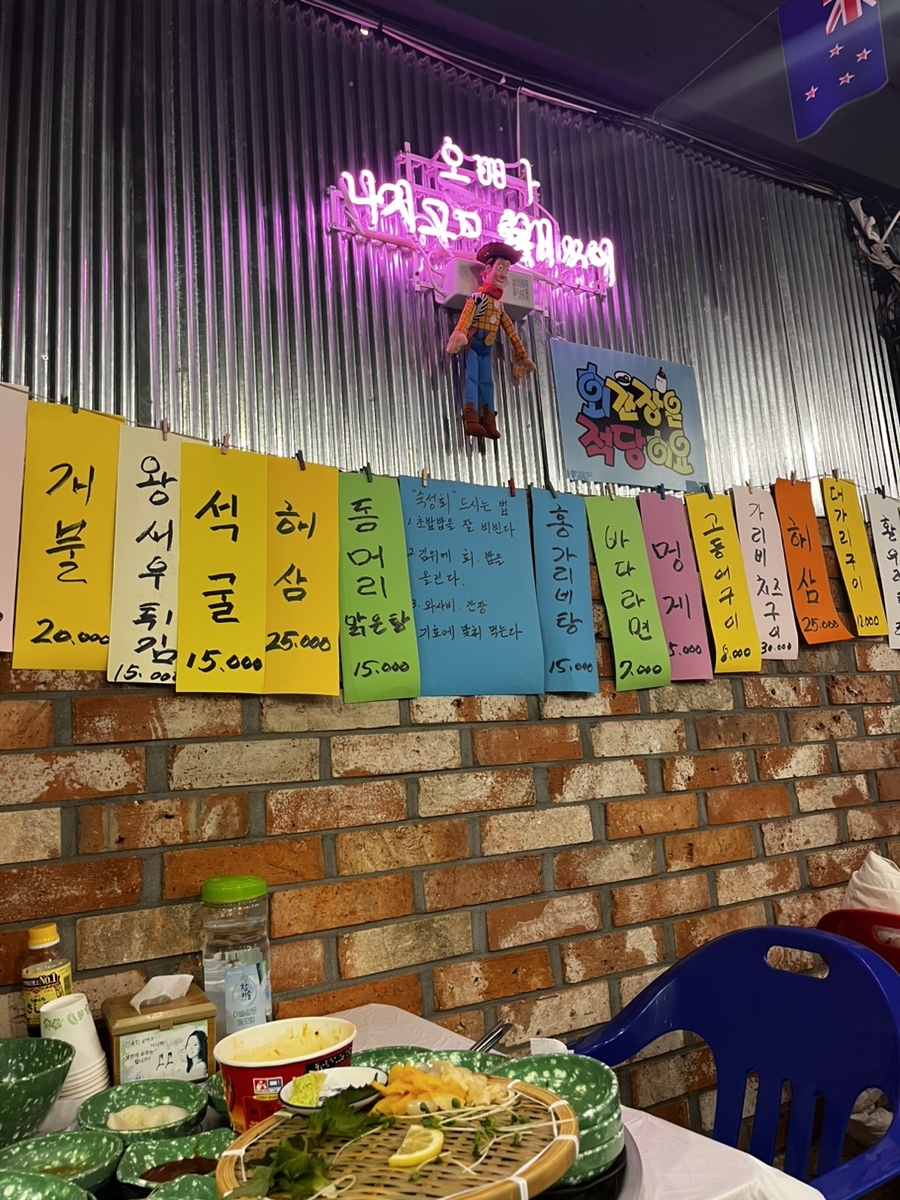 오빠
나지금 취했어
회간장은
적당히요
개불
20.000
왕새우튀김
15.000
석굴
15.000
해삼
25.000
돔머리맑은탕
15.000
"숙성회" 드시는 법
1. 초밥밥을 잘 비빈다
2. 김위에 회. 밥을
올린다.
3. 와사비. 간장
기호에 맞춰 먹는다
홍가리비탕
15.000
바다라면
7.000
멍게
5.000
고등어구이
8.000
가리비치즈구이
30.000
해삼
25.000
대가리구이
12.000